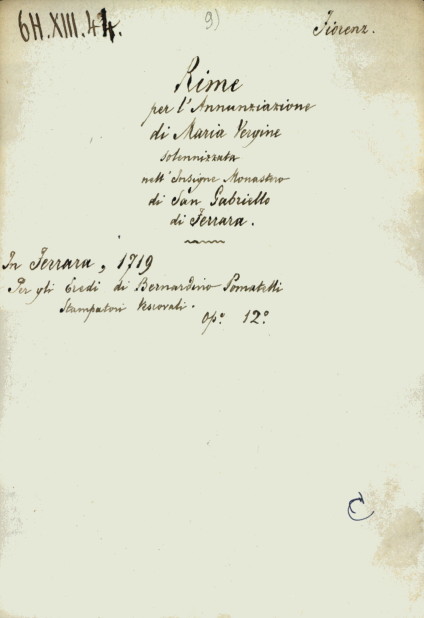 6H.XIII.44.
9)
Fiorenz.
Rime
per l'Annunziazione
di Maria Vergine
solennizzata
nell'Insigne Monastero
di San Gabriello
di Ferrara.
In Ferrara, 1719
Per gli Eredi di Bernardino Pomatelli
Stampatori Vescovali.
Op.º 12.º